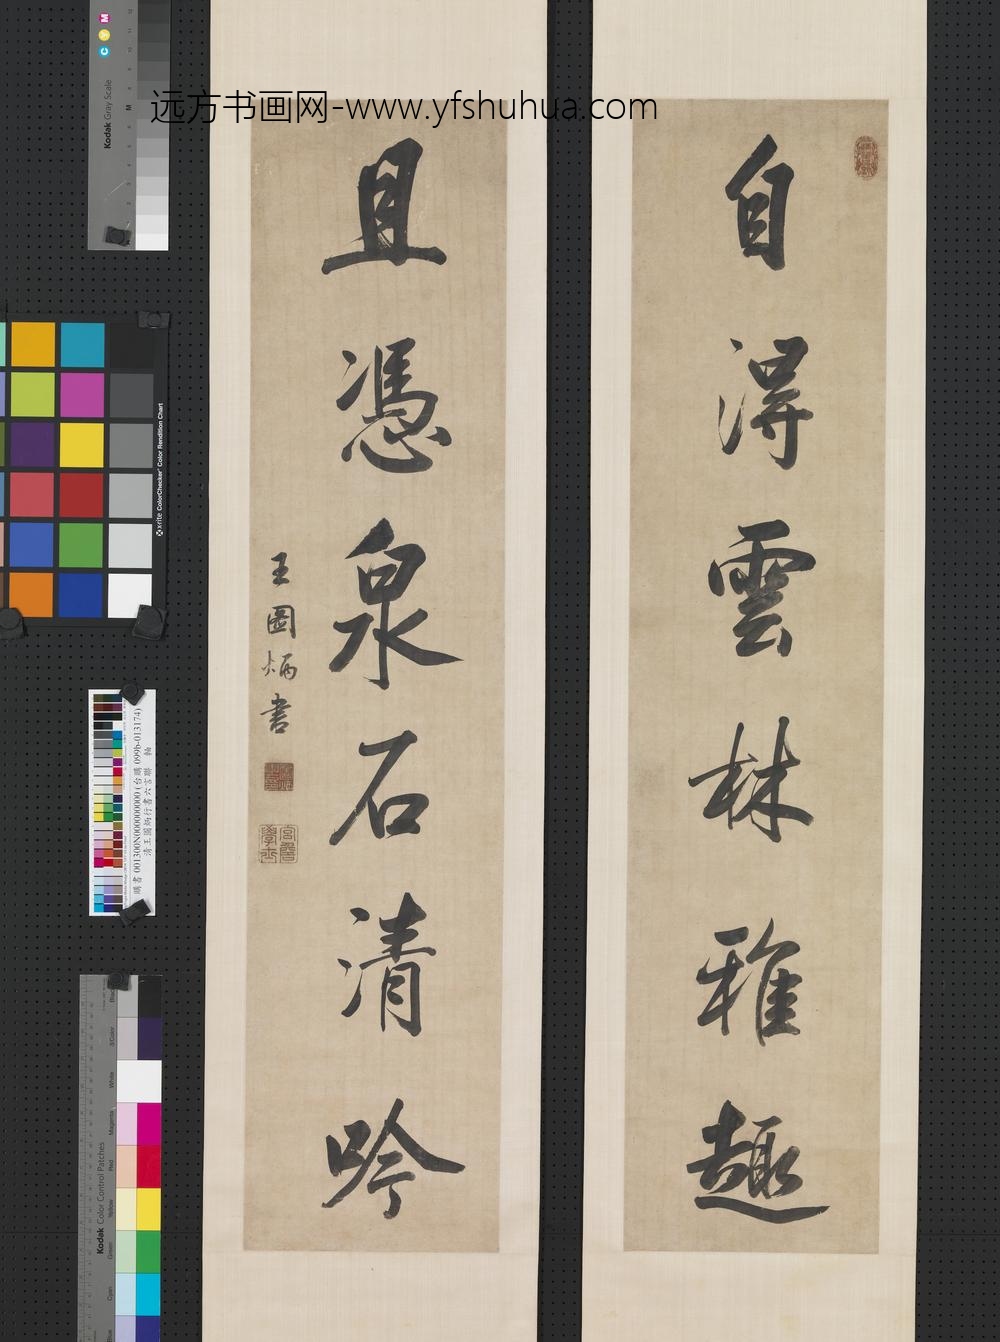 远方书画网-www.yfshuhua.com
自得雲林雅趣
且憑泉石清吟
王圖炳書
購書 001300N000000000 (台購 099b-013174)
清王圖炳行書六言聯 軸
Kodak Gray Scale
C Y M
M
x-rite ColorChecker Color Rendition Chart
Kodak Color Control Patches
Black
3/Color
White
Magenta
Red
Yellow
Green
Cyan
Blue